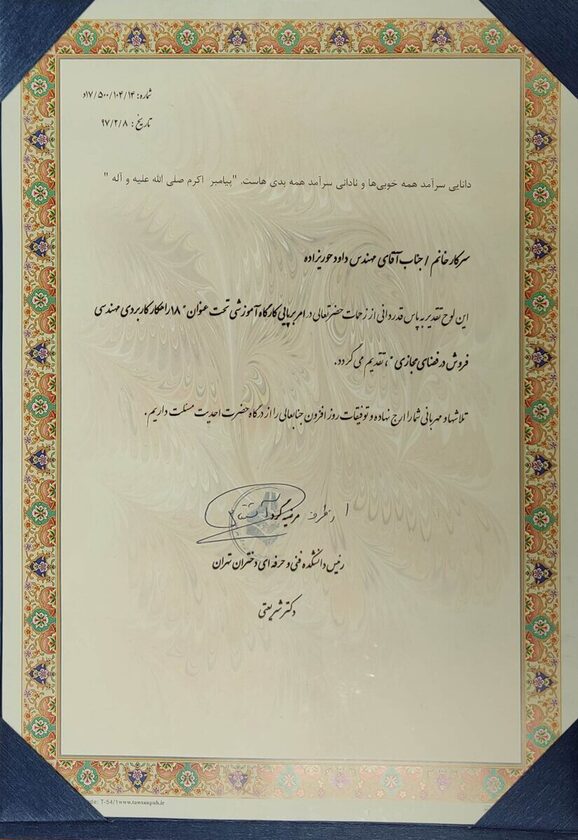 شماره: ۱۷/۵۰۰/۱۰۴/۱۴د
تاریخ: ۹۷/۲/۸
دانایی سرآمد همه خوبی‌ها و نادانی سرآمد همه بدی هاست. "پیامبر اکرم صلی الله علیه و آله "
سرکار خانم / جناب آقای مهندس داود حوریزاده
این لوح تقدیر به پاس قدردانی از زحمات حضرتعالی در امر برپایی کارگاه آموزشی تحت عنوان "۱۸ راهکار کاربردی مهندسی
فروش در فضای مجازی "، تقدیم می گردد.
تلاشها و مهربانی شما را ارج نهاده و توفیقات روز افزون جنابعالی را از درگاه حضرت احدیت مسئلت داریم.
از طرف مرضیه گردا
رئیس دانشکده فنی و حرفه ای دختران تهران
دکتر شریعتی
de: T-54/1 www.tawsanpub.ir